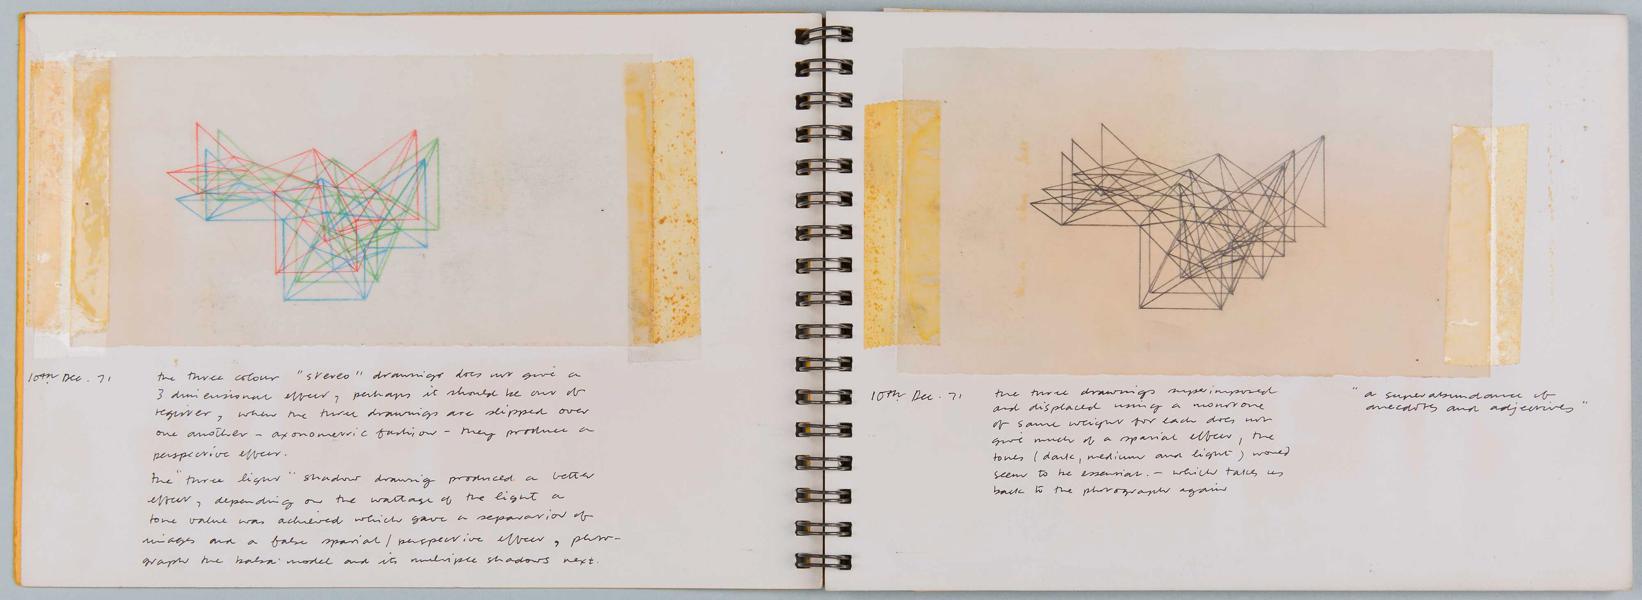 10TH Dec. 71
the three colour "stereo" drawings does not give a
3 dimensional effect, perhaps it should be out of
register, when the three drawings are slipped over
one another - axonometric fashion - they produce a
perspective effect.
the "three light" shadow drawing produced a better
effect, depending on the wattage of the light a
tone value was achieved which gave a separation of
images and a false spatial/perspective effect, photo-
graph the balsa model and its multiple shadows next.
10TH Dec. 71
the three drawings superimposed
and displaced using a monotone
of same weight for each does not
give much of a spatial effect, the
tones (dark, medium and light) would
seem to be essential. - which takes us
back to the photograph again
"a superabundance of
anecdotes and adjectives"